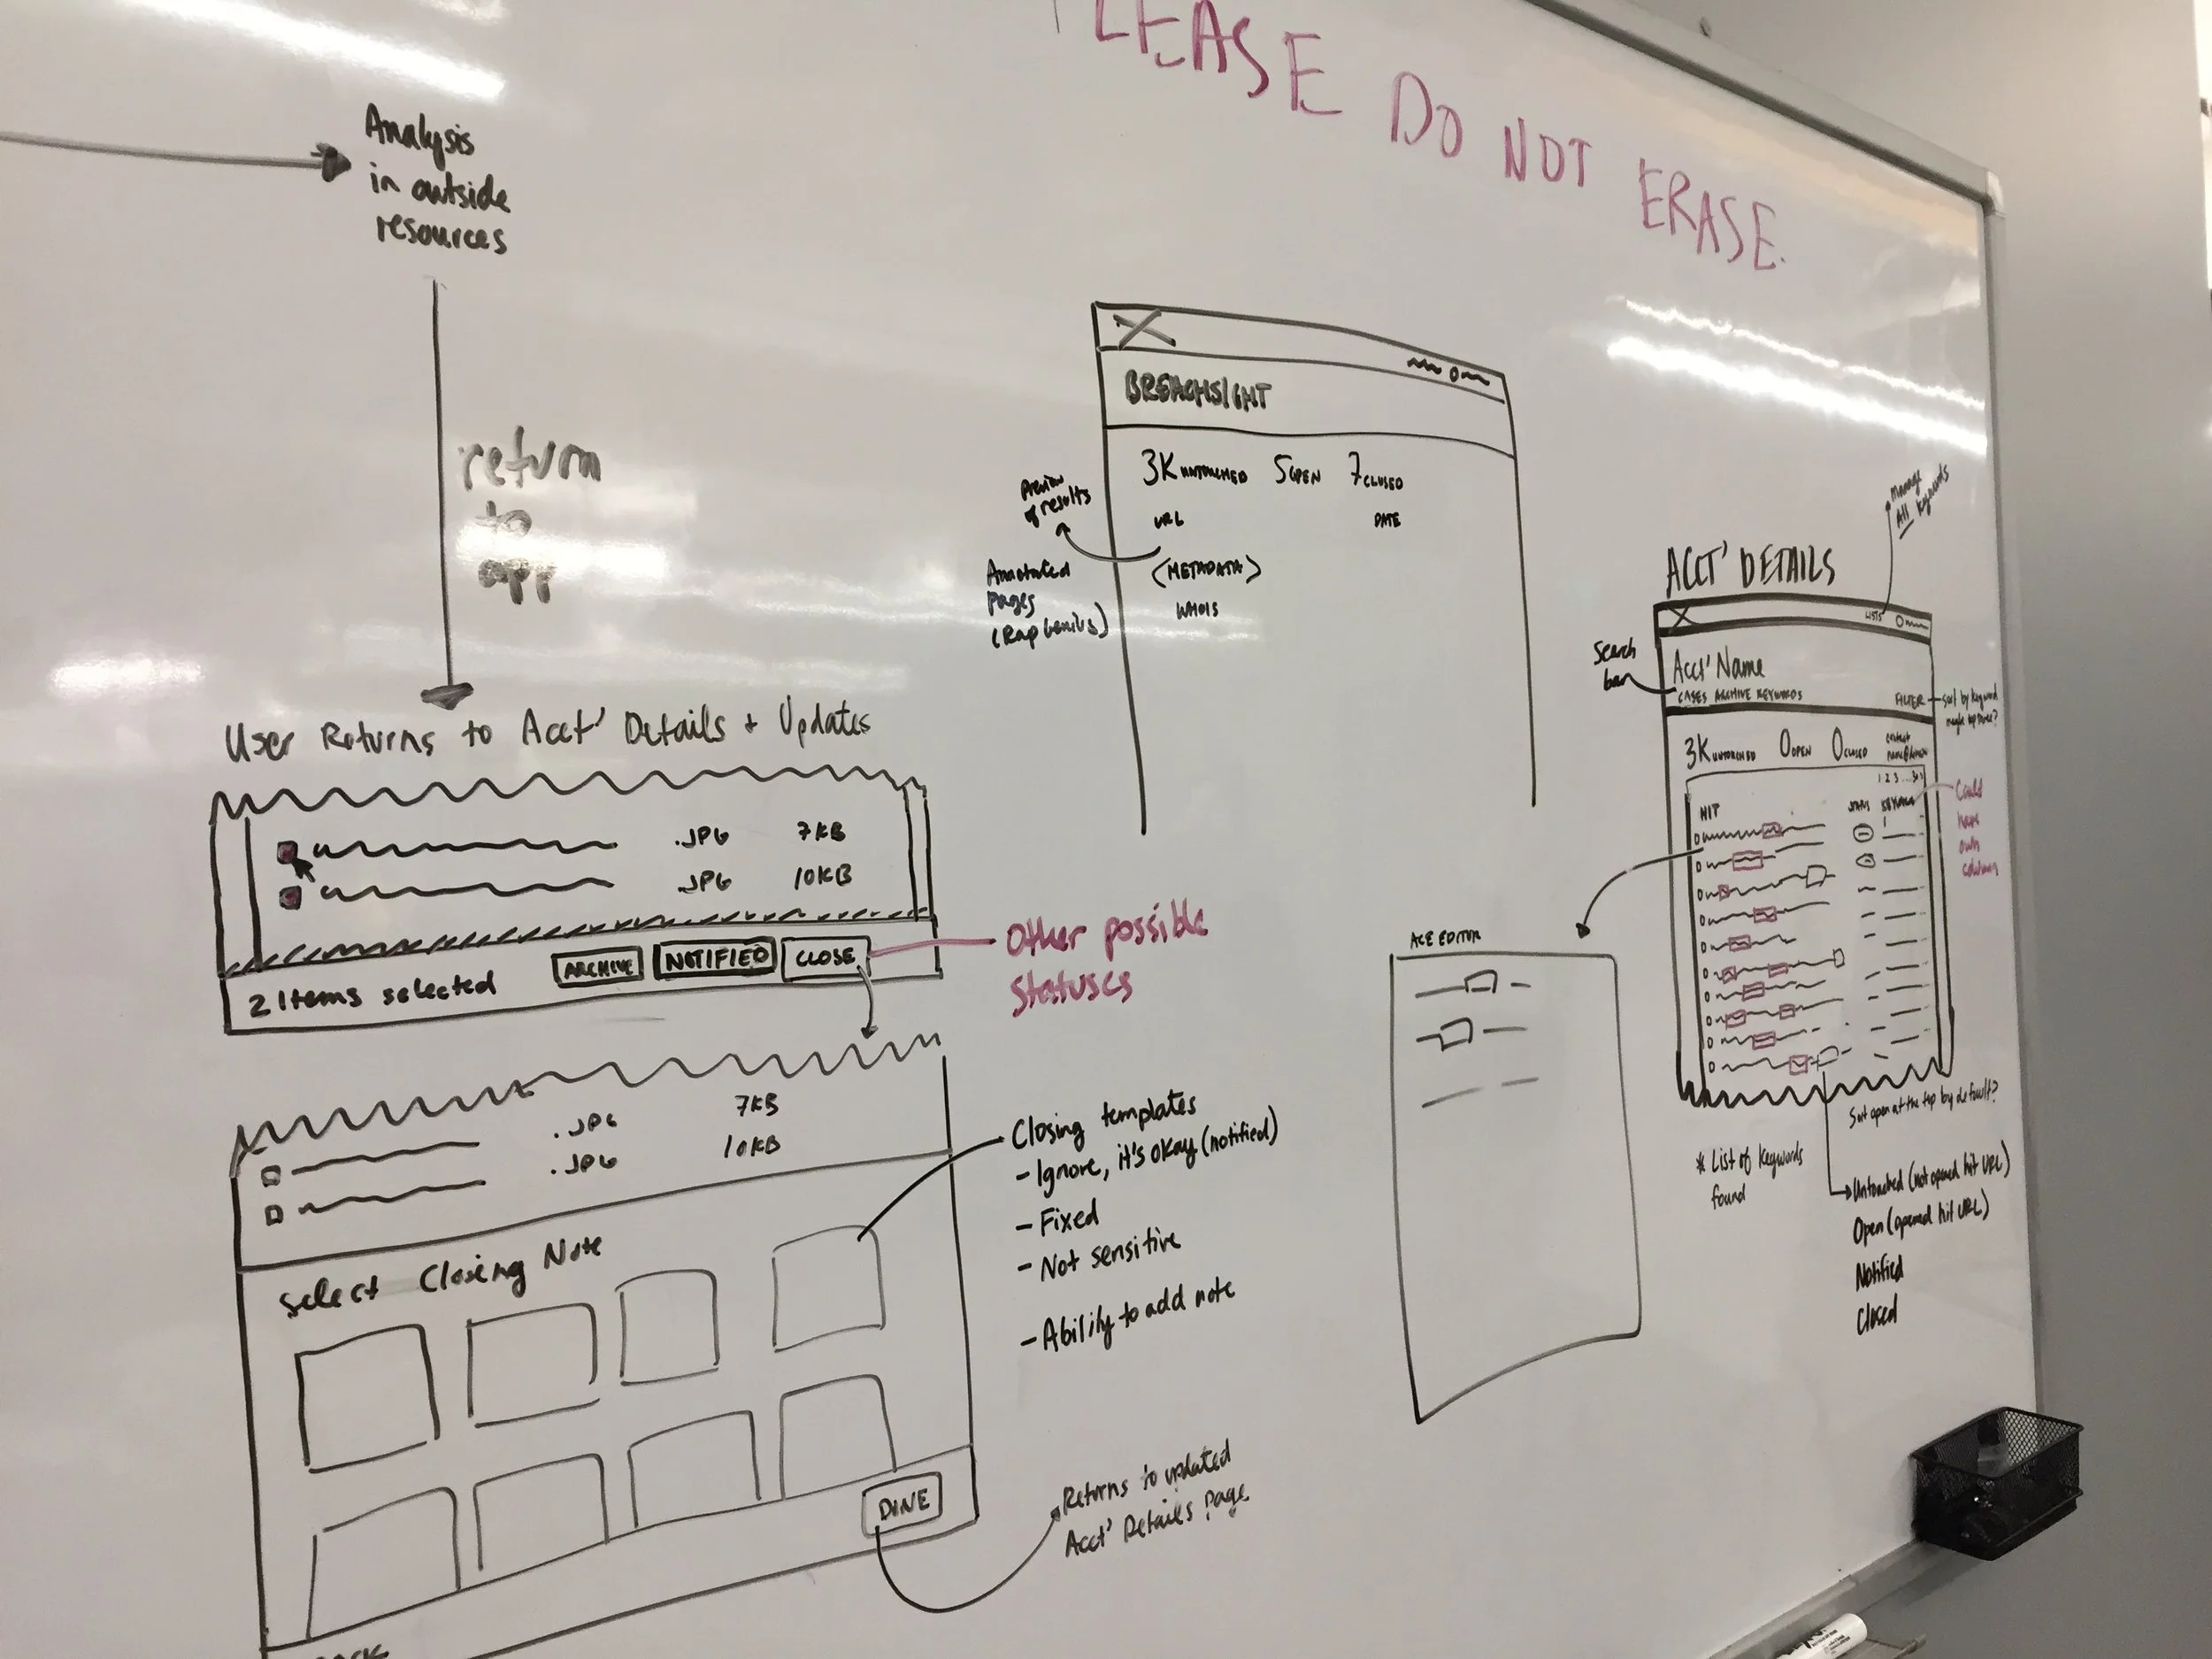 PLEASE DO NOT ERASE.
Analysis
in outside
resources
return
to
app
User Returns to Acct' Details + Updates
.JPG 7KB
.JPG 10KB
2 Items selected ARCHIVE NOTIFIED CLOSE
Other possible
statuses
.JPG 7KB
.JPG 10KB
Select Closing Note
DONE
Closing templates
- Ignore, it's okay (notified)
- Fixed
- Not sensitive
- Ability to add note
Returns to updated
Acct' Details Page
BREACHSIGHT
3K UNTOUCHED 5 OPEN 7 CLOSED
URL DATE
(METADATA)
WHOIS
Preview
of results
Annotated
pages
(Rap Genius)
ACE EDITOR
Manage
All Keywords
ACCT' DETAILS
LISTS
Search
bar
Acct' Name
CASES ARCHIVE KEYWORDS FILTER
sort by keyword
3K UNTOUCHED 0 OPEN 0 CLOSED
1 2 3
HIT
Could
have
own
column
Sort open at the top by default?
* List of keywords
found
Untouched (not opened hit URL)
Open (opened hit URL)
Notified
Closed